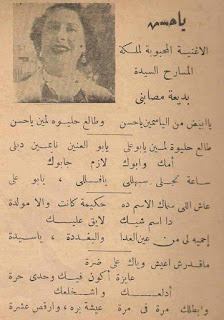 ياحسن
الاغنية المحبوبة لملكة
المسارح السيدة
بديعة مصابنى
ياابيض من الياسمين ياحسن وطالع حليوه لمين ياحسن
طالع حليوة لمين يابو على يابو العنين ناعسين دبلى
أمك وابوك لازم جابوك
ساعة تجلى سبهللى يافللى ، يابو على
عاش اللى سماك الاسم ده حكيمة كانت والا مولدة
دا اسم شبك لايق عليك
إحميه لى من عين العدا والبغددة ، ياسيدة
ماقدرش اعيش وياك على ضرة
عايزة أكون فيك وحدى حرة
أدلعك واشخلعك
وابطلك مرة فى مرة عيشة بره ، وارقص عشرة